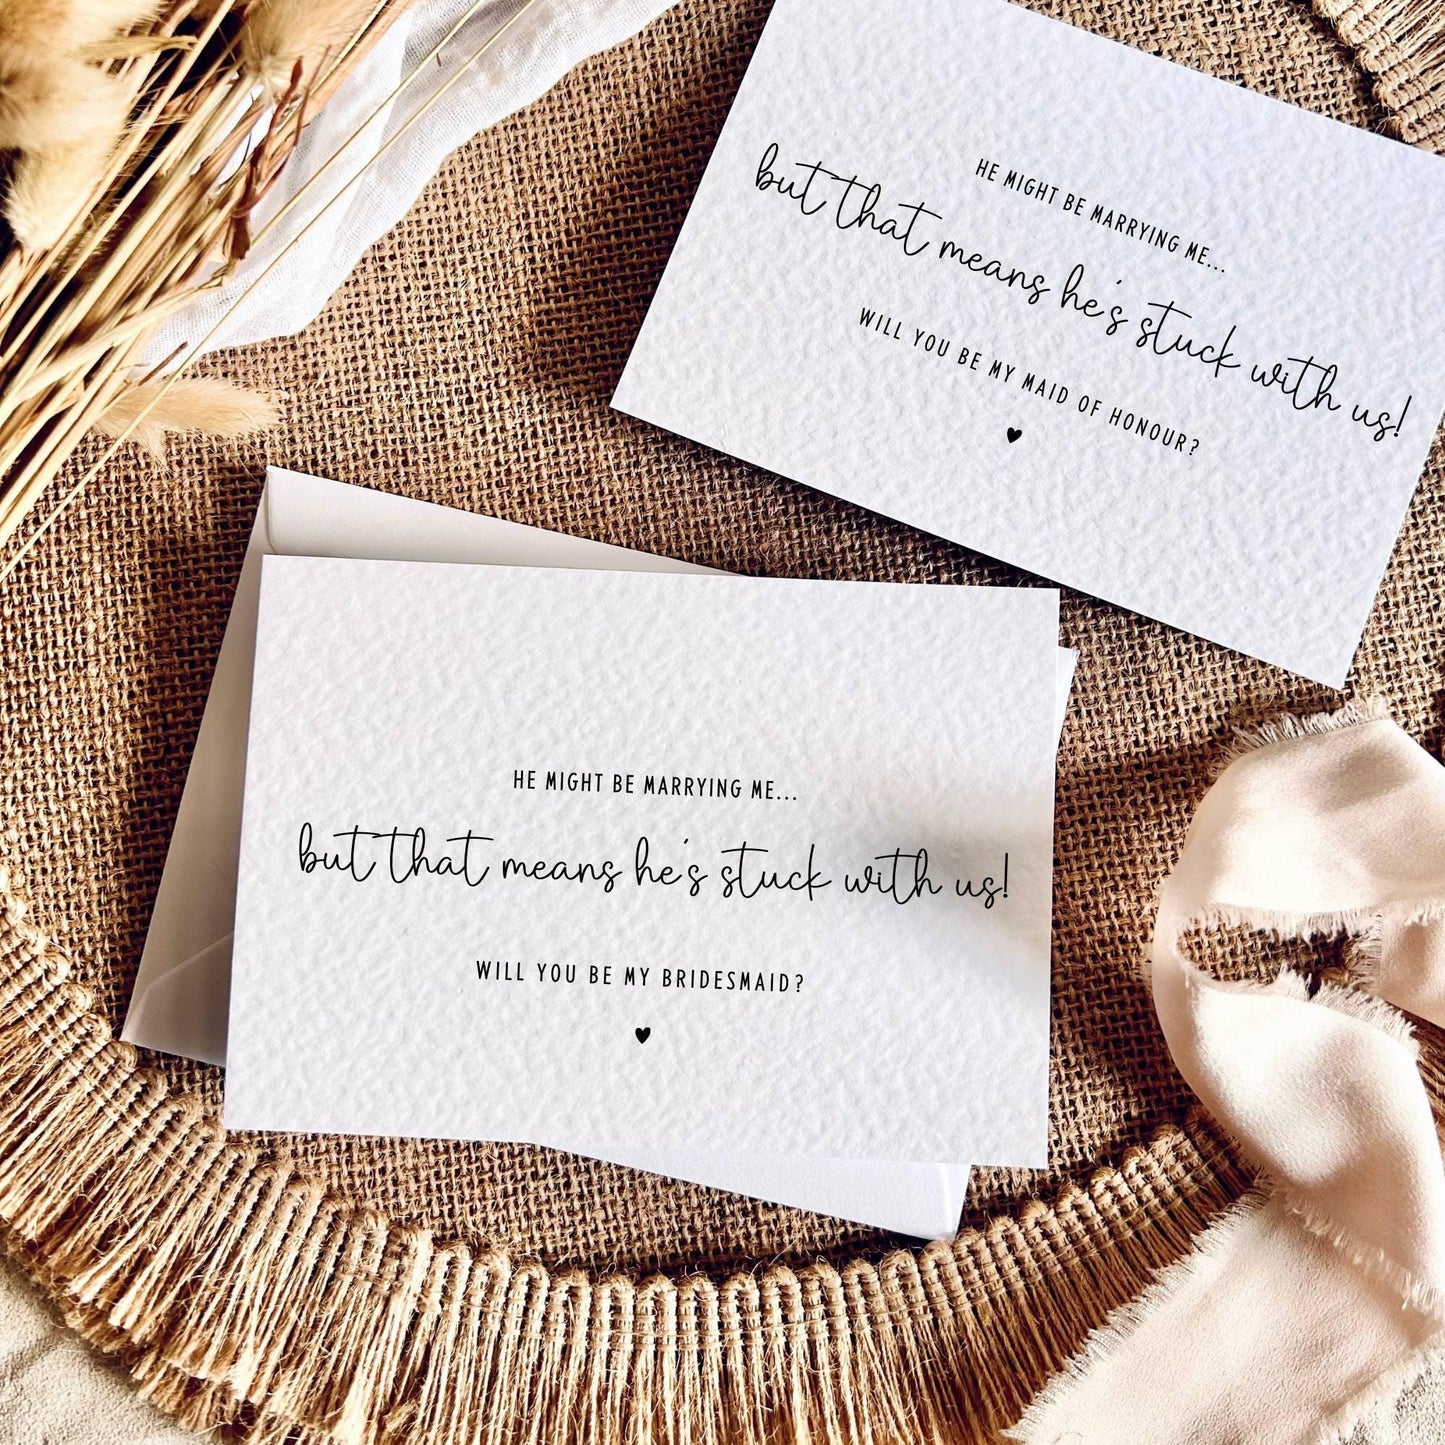 HE MIGHT BE MARRYING ME...
but that means he's stuck with us!
WILL YOU BE MY MAID OF HONOUR?
HE MIGHT BE MARRYING ME...
but that means he's stuck with us!
WILL YOU BE MY BRIDESMAID?